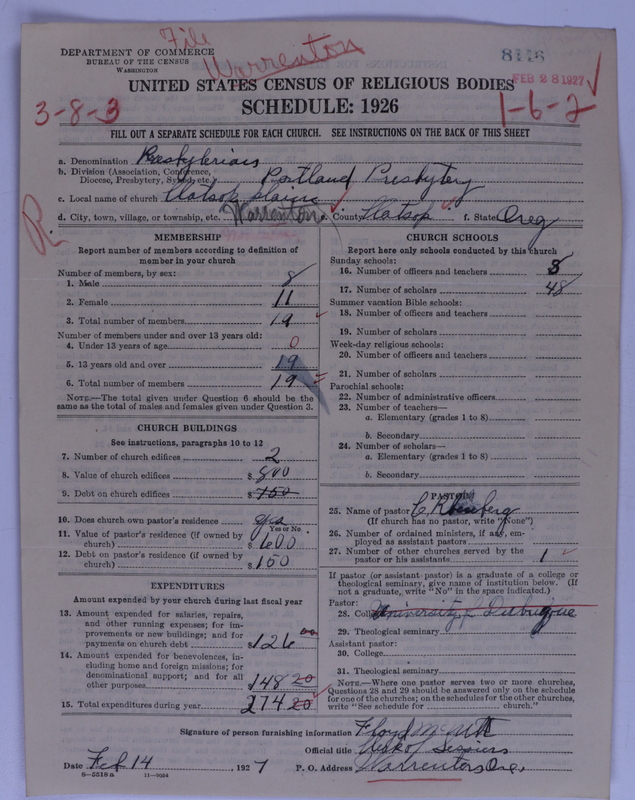 File
DEPARTMENT OF COMMERCE
BUREAU OF THE CENSUS
WASHINGTON
Warrenton
8116
FEB 28 1927
UNITED STATES CENSUS OF RELIGIOUS BODIES
3-8-3
SCHEDULE: 1926
1-6-2
FILL OUT A SEPARATE SCHEDULE FOR EACH CHURCH. SEE INSTRUCTIONS ON THE BACK OF THIS SHEET
a. Denomination Presbyterian
b. Division (Association, Conference, Diocese, Presbytery, Synod, etc.) Portland Presbytery
c. Local name of church Clatsop Plains
d. City, town, village, or township, etc. Warrenton e. County Clatsop f. State Oreg
R
MEMBERSHIP
Report number of members according to definition of
member in your church
Number of members, by sex:
1. Male 8
2. Female 11
3. Total number of members 19
Number of members under and over 13 years old:
4. Under 13 years of age 0
5. 13 years old and over 19
6. Total number of members 19
NOTE.—The total given under Question 6 should be
same as the total of males and females given under Question 3.
CHURCH BUILDINGS
See instructions, paragraphs 10 to 12
7. Number of church edifices 2
8. Value of church edifices $ 800
9. Debt on church edifices $ 150
10. Does church own pastor's residence yes
Yes or No
11. Value of pastor's residence (if owned by
church) $ 600
12. Debt on pastor's residence (if owned by
church) $ 150
EXPENDITURES
Amount expended by your church during last fiscal year
13. Amount expended for salaries, repairs,
and other running expenses; for im-
provements or new buildings; and for
payments on church debt $ 126 00
14. Amount expended for benevolences, in-
cluding home and foreign missions; for
denominational support; and for all
other purposes 148 20
15. Total expenditures during year 274 20
CHURCH SCHOOLS
Report here only schools conducted by this church
Sunday schools:
16. Number of officers and teachers
17. Number of scholars 48
Summer vacation Bible schools:
18. Number of officers and teachers
19. Number of scholars
Week-day religious schools:
20. Number of officers and teachers
21. Number of scholars
Parochial schools:
22. Number of administrative officers
23. Number of teachers—
a. Elementary (grades 1 to 8)
b. Secondary
24. Number of scholars—
a. Elementary (grades 1 to 8)
b. Secondary
PASTOR
25. Name of pastor
(If church has no pastor, write "None")
26. Number of ordained ministers, if any, em-
ployed as assistant pastors
27. Number of other churches served by the
pastor or his assistants 1
If pastor (or assistant pastor) is a graduate of a college or
theological seminary, give name of institution below. (If
not a graduate, write "No" in the space indicated.)
Pastor:
28. College University of Dubuque
29. Theological seminary
Assistant pastor:
30. College
31. Theological seminary
NOTE.—Where one pastor serves two or more churches,
Questions 28 and 29 should be answered only on the schedule
for one of the churches; on the schedules for the other churches,
write "See schedule for church."
Signature of person furnishing information Floyd
Official title Clerk of Session
Date Feb 14, 1927 P. O. Address Warrenton Ore.
8—5518a 11—9024